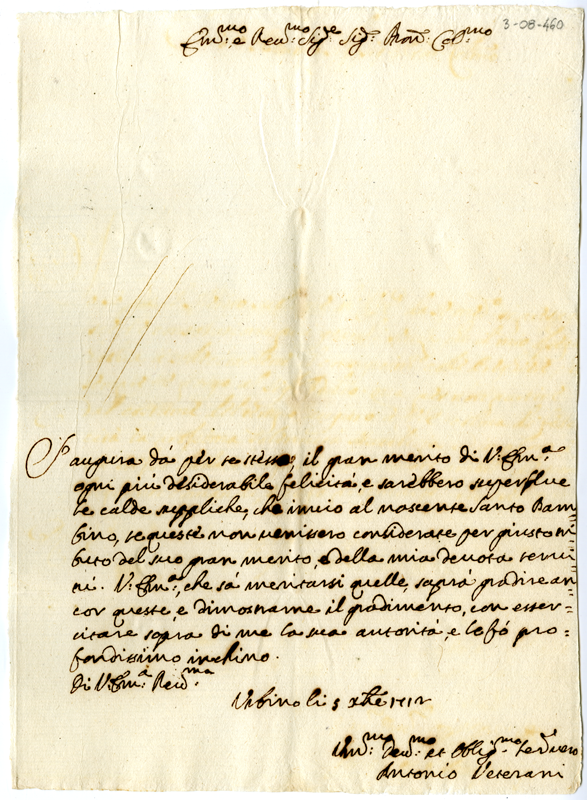 3-08-460
Em.mo e Rev.mo Sig.re Sig.r Pron. Col.mo
S'augura da per se stesso il gran merito di V. Em.a
ogni più desiderabile felicità, e sarebbero superflue
le calde suppliche, che invio al nascente Santo Bam=
bino, se queste non venissero considerate per giusto tri=
buto del suo gran merito, e della mia devota servi=
tù. V. Em.a, che sà meritarsi quelle, saprà gradire an=
cor queste, e dimostrarne il gradimento, con eser=
citare sopra di me la sua autorità, e le fò pro=
fondissimo inchino.
Di V. Em.a Rev.ma
Urbino li 5 xbre 1712
Um.mo Dev.mo et Oblig.mo Serv.re vero
Antonio Veterani